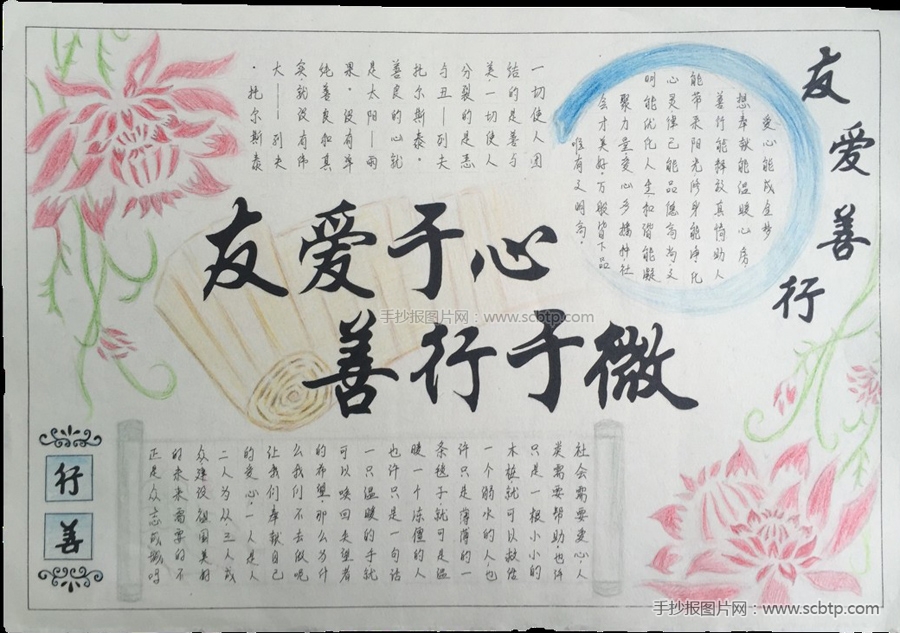 友爱善行
爱心能成全梦
想奉献能温暖心房
善行能释放真情助人
能带来阳光修身能净化
心灵律己能品德高尚文
明能优化人生和谐能凝
聚力量爱心多播种社
会才美好，万般皆下品
唯有文明高。
一切使人团
结的是善与
美一切使人
分裂的是恶
与丑——列夫
托尔斯泰。
善良的心就
是太阳——雨
果。没有单
纯善良和真
实，就没有伟
大——列夫
·托尔斯泰
友爱于心
善行于微
手抄报图片网：www.scbtp.com
社会需要爱心，人
类需要帮助，也许
只是一根小小的
木桩就可以救活
一个溺水的人，也
许只是薄薄的一
条毯子就可是温
暖一个冻僵的人
也许只是一句话
一只温暖的手就
可以唤回失望者
的希望那么为什
么我们不去做呢
让我们奉献自己
的爱心，一人是人
二人为从三人成
众建设祖国美好
的未来需要的不
正是众志成城吗
行善
手抄报图片网：www.scbtp.com